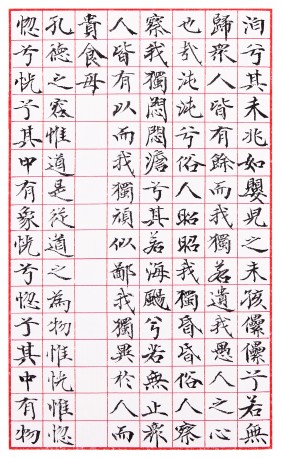 泊兮其未兆如嬰兒之未孩儽儽兮若無
歸眾人皆有餘而我獨若遺我愚人之心
也哉沌沌兮俗人昭昭我獨昏昏俗人察
察我獨悶悶澹兮其若海飂兮若無止眾
人皆有以而我獨頑似鄙我獨異於人而
貴食母
孔德之容惟道是從道之為物惟恍惟惚
惚兮恍兮其中有象恍兮惚兮其中有物